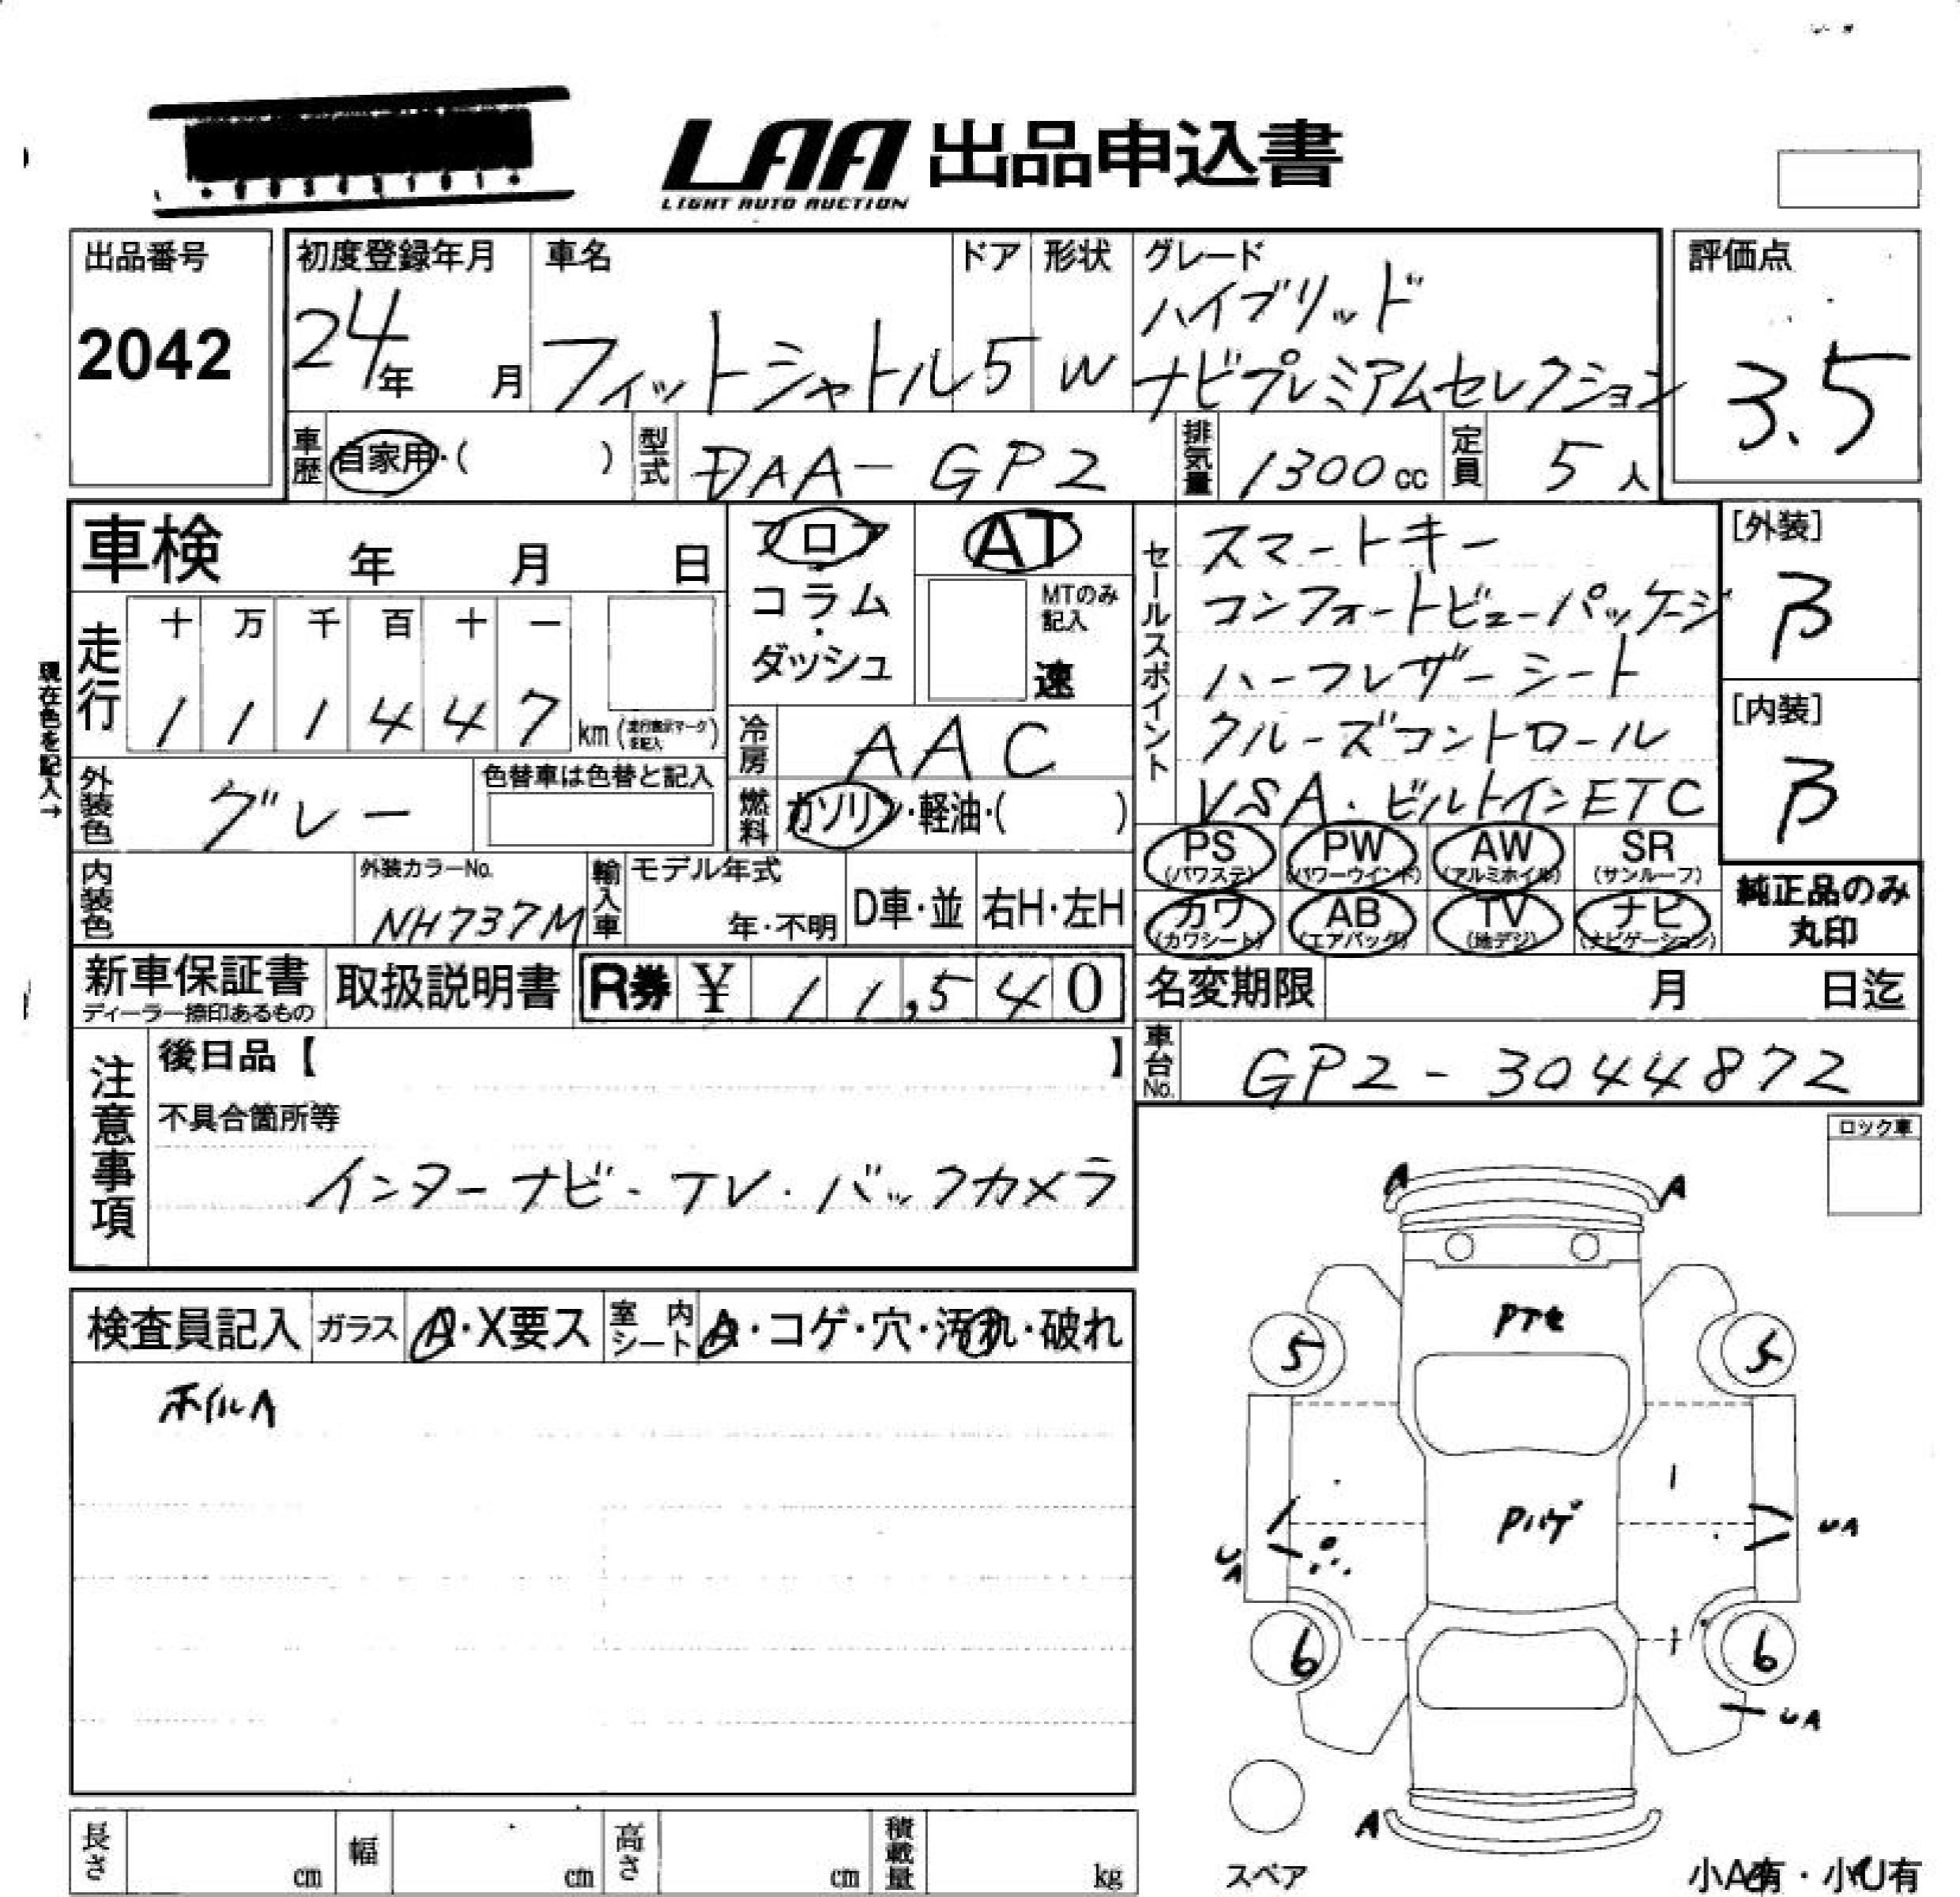 LAA 出品申込書
LIGHT AUTO AUCTION
出品番号
2042
初度登録年月
24年 月
車名
フィットシャトル
ドア
5
形状
W
グレード
ハイブリッド
ナビプレミアムセレクション
評価点
3.5
車歴
自家用・( )
型式
DAA-GP2
排気量
1300cc
定員
5人
車検 年 月 日
フロア
・
コラム
・
ダッシュ
AT
MTのみ
記入
速
セールスポイント
スマートキー
コンフォートビューパッケージ
ハーフレザーシート
クルーズコントロール
VSA・ビルトインETC
[外装]
B
[内装]
B
現在色を記入→
走行
十 万 千 百 十 一
1 1 1 4 4 7 km
冷房
AAC
外装色
グレー
色替車は色替と記入
燃料
ガソリン・軽油・( )
PS
(パワステ)
PW
(パワーウインド)
AW
(アルミホイル)
SR
(サンルーフ)
カワ
(カワシート)
AB
(エアバッグ)
TV
(地デジ)
ナビ
(ナビゲーション)
純正品のみ
丸印
内装色
外装カラーNo.
NH737M
輸入車
モデル年式
年・不明
D車・並
右H・左H
新車保証書
ディーラー捺印あるもの
取扱説明書
R券 ¥ 11,540
名変期限 月 日迄
車台No.
GP2-3044872
注意事項
後日品【 】
不具合箇所等
インターナビ・TV・バックカメラ
ロック車
検査員記入
ガラス
A・X要ス
室内
シート
A・コゲ・穴・汚れ・破れ
ホイルA
A
A
Pアセ
5
5
Pハゲ
UA
UA
6
6
UA
A
スペア
小A有・小U有
長さ cm
幅 cm
高さ cm
積載量 kg